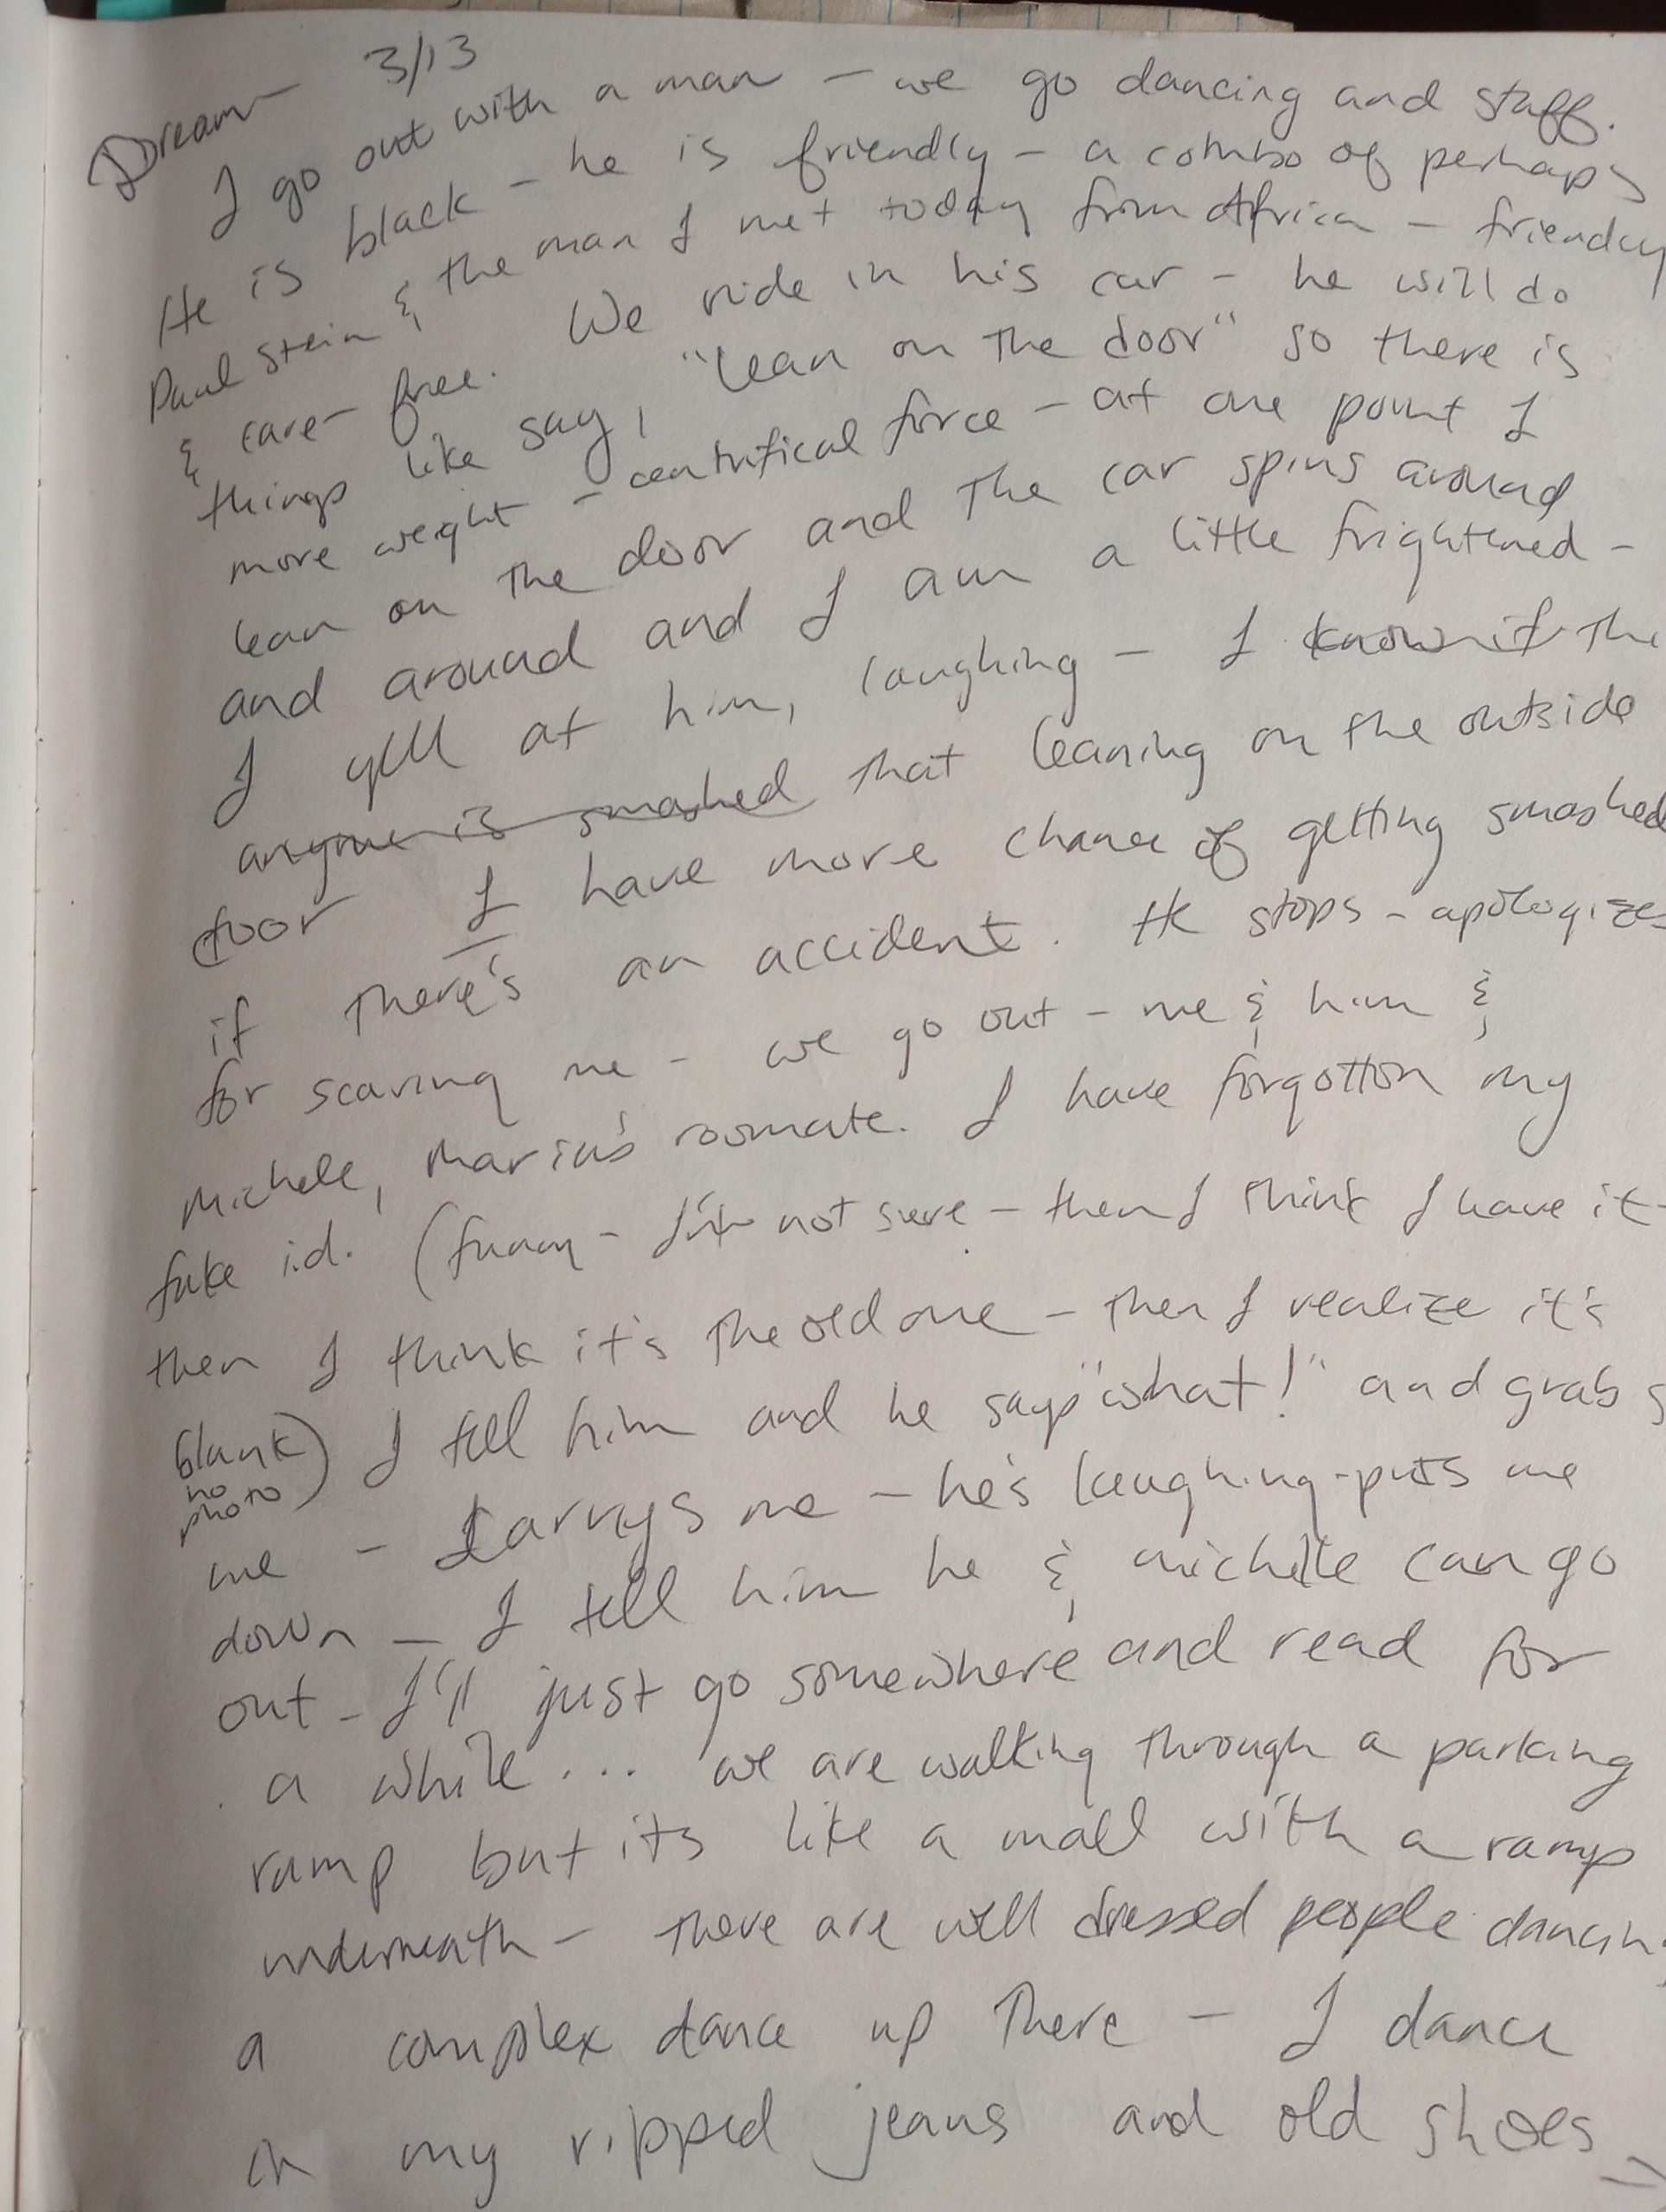 Dream - 3/13
I go out with a man - we go dancing and stuff.
He is black - he is friendly - a combo of perhaps
Paul Stein & the man I met today from Africa - friendly
& care-free. We ride in his car - he will do
things like say, "lean on the door" so there is
more weight - centrifical force - at one point I
lean on the door and the car spins around
and around and I am a little frightened -
I yell at him, laughing - I know if the
anyone is smashed that leaning on the outside
door I have more chance of getting smashed
if there's an accident. He stops - apologizes
for scaring me - we go out - me & him &
Michele, Maria's roomate. I have forgotton my
fake i.d. (funny - I'm not sure - then I think I have it -
then I think it's the old one - then I realize it's
blank no photo) I tell him and he says "what!" and grabs
me - carrys me - he's laughing - puts me
down - I tell him he & michele can go
out - I'll just go somewhere and read for
a while... we are walking through a parking
ramp but its like a mall with a ramp
underneath - there are well dressed people dancing
a complex dance up there - I dance
in my ripped jeans and old shoes →